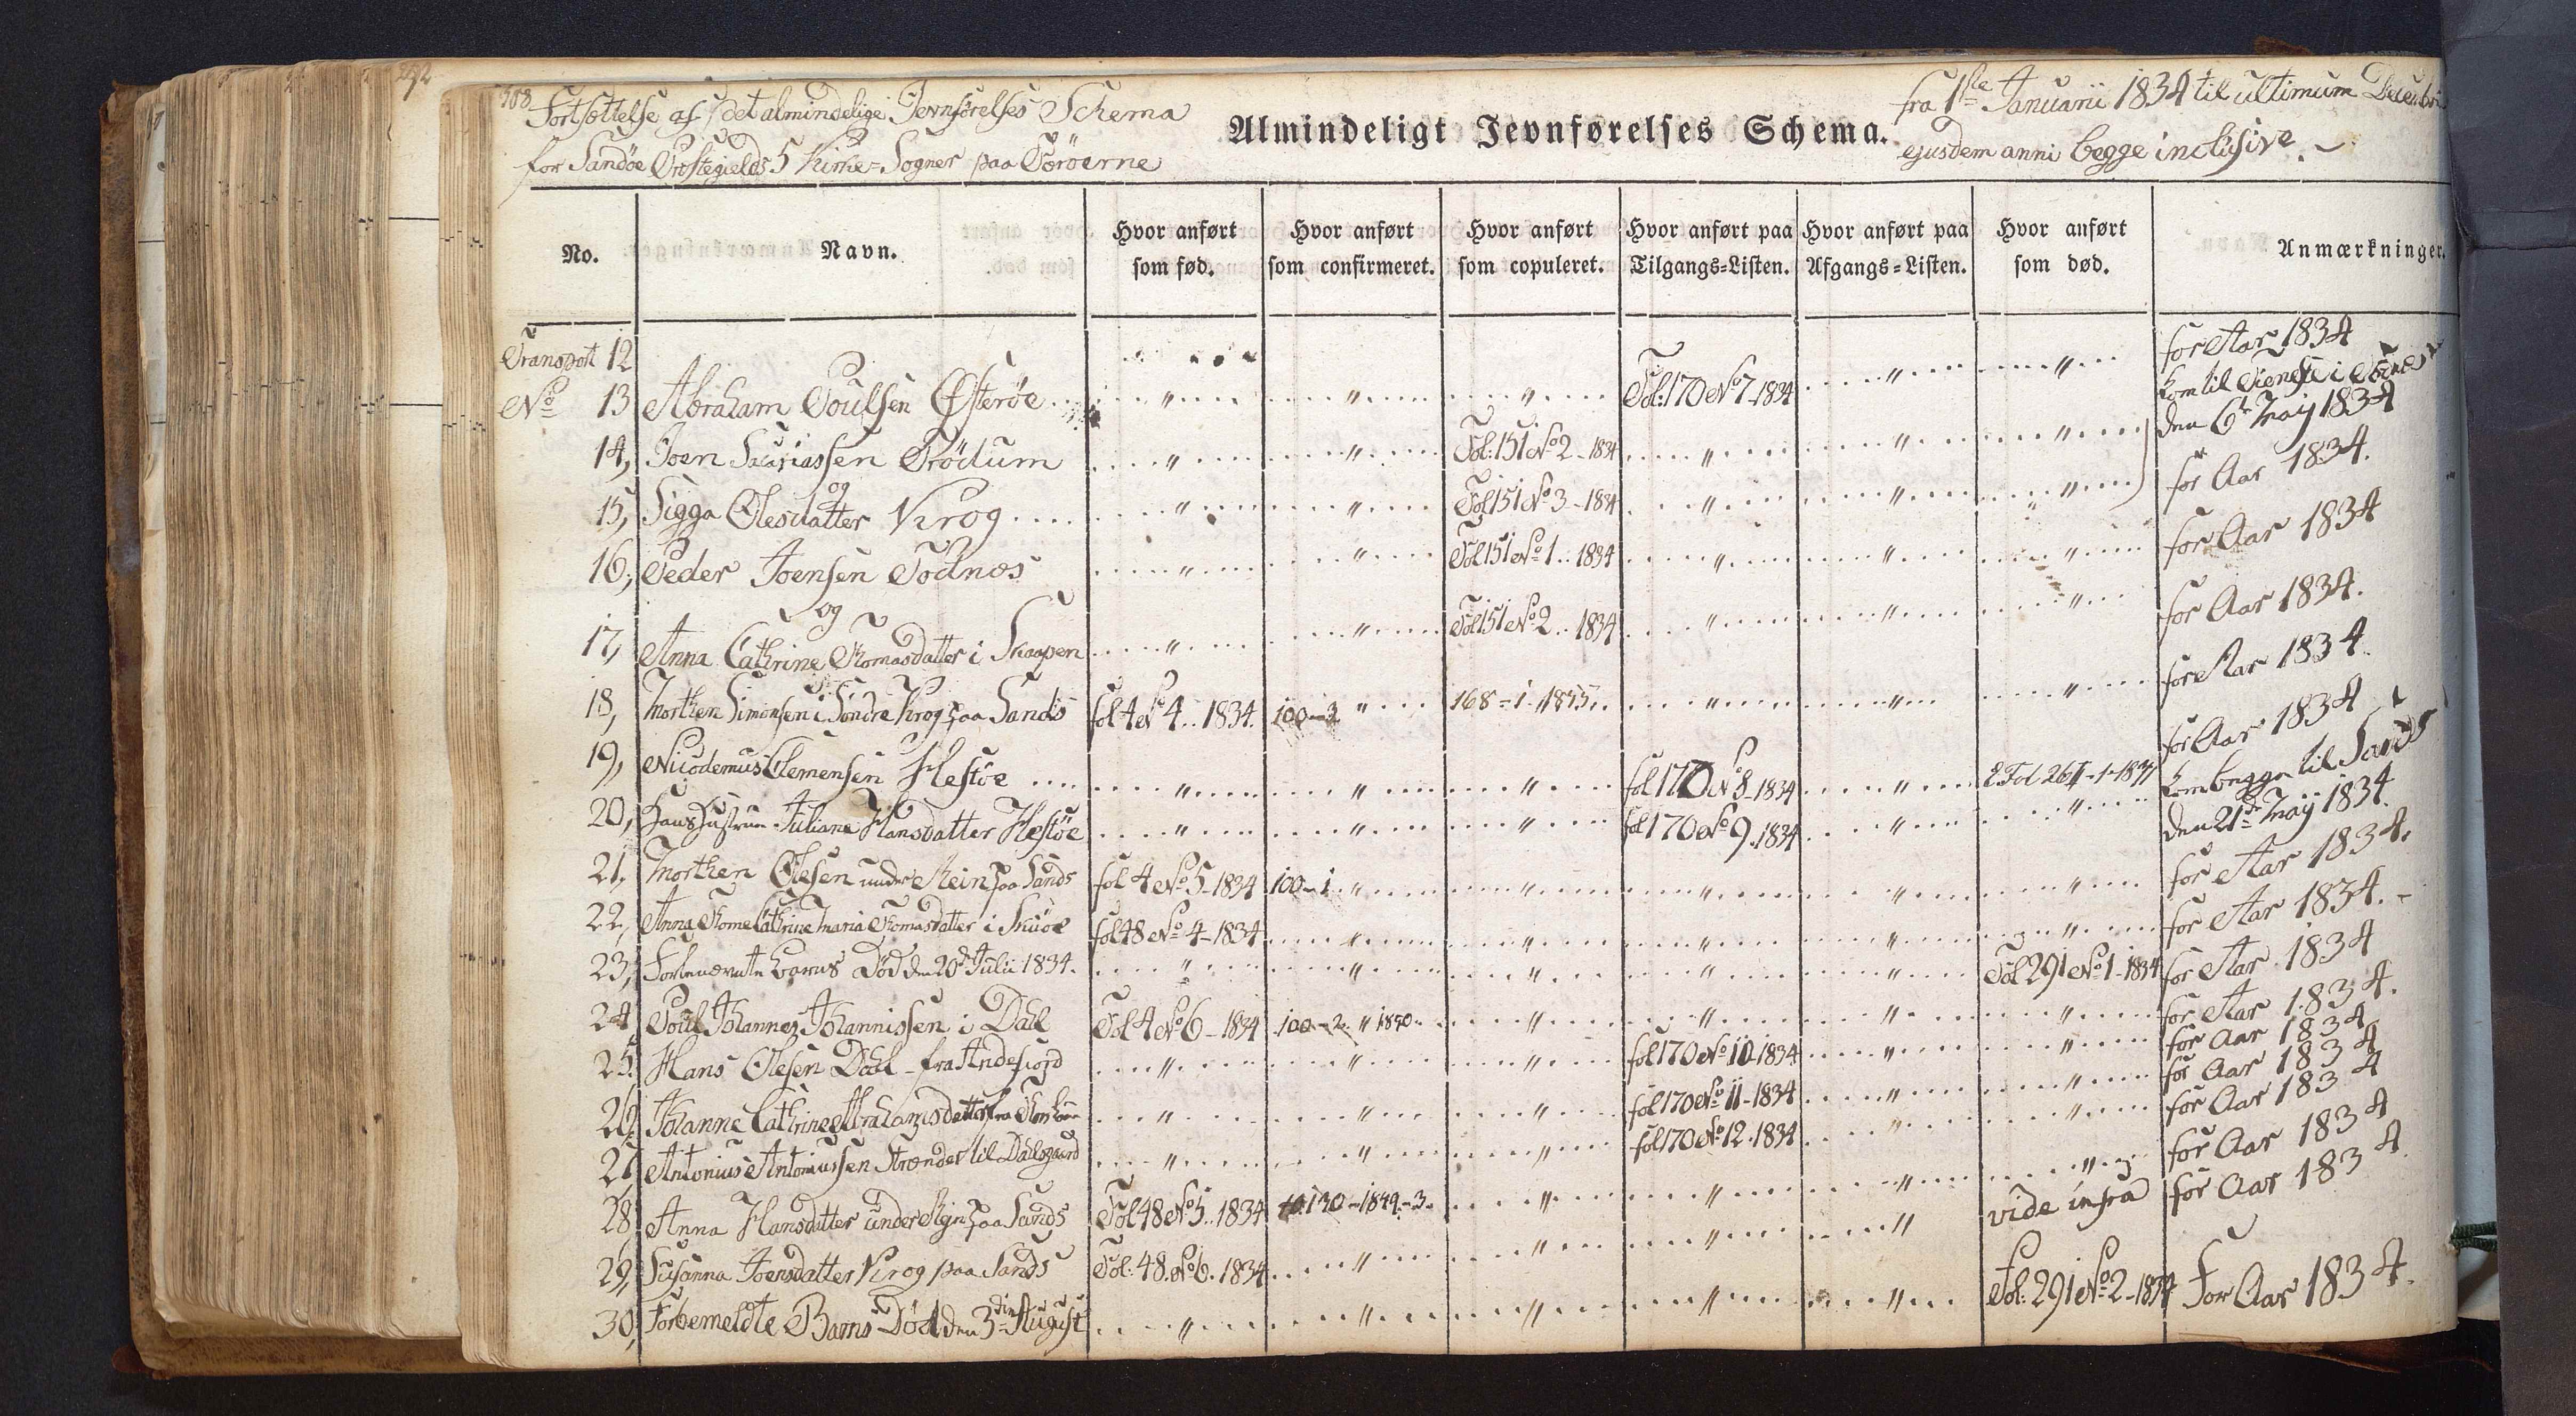 308
Fortsættelse af det almindelige Jevnførelses Schema
for Sandøe Præstegields 5 Kirke-Sogner paa Færöerne
Almindeligt Jevnførelses Schema.
fra 1ste Januarii 1834 til ultimum Decembris
ejusdem anni begge inclusive.
No. Navn. Hvor anført som fød. Hvor anført som confirmeret. Hvor anført som copuleret. Hvor anført paa Tilgangs-Listen. Hvor anført paa Afgangs-Listen. Hvor anført som død. Anmærkninger.
Transport 12 for Aar 1834
No 13 Abraham Poulsen Østerøe " " " Fol: 170 No 7-1834 " " kom til Tieneste i
den 6te Maij 1834
14, Joen Sacariassen Trödum " " Fol: 151 No 2-1834 " " " for Aar 1834.
og
15, Sigga Olesdatter Krog " " Fol 151 No 3-1834 " " "
16, Peder Joensen Todnæs " " Fol 151 No 1..1834 " " " for Aar 1834
og
17, Anna Cathrine Thomasdatter i Skaapen " " Fol 151 No 2..1834 " " " for Aar 1834.
18, Morthen Simonsen i Söndre Krog paa Sands fol 4 No 4..1834. 100-3 " 168-1-1855. " " " for Aar 1834.
19, Nicodemus Clemensen Hestöe " " " fol 170 No 8-1834 " 2 Fol 261-1-1837 for Aar 1834
kom begge til Sands
20, Hans Hustrue Juliane Hansdatter Hestöe " " " fol 170 No 9.1834 " " den 21de Maij 1834.
21, Morthen Olesen under Rein paa Sands fol 4 No 5-1834 100-1 " " " " " for Aar 1834.
22, Anna Thome Cathrine Maria Thomasdatter i Skuöe fol 48 No 4-1834 " " " " " for Aar 1834.-
23, Forbenævnte barns Död den 20de Julii 1834. " " " " " Fol 291 No 1-1834 for Aar 1834
24, Poul Johannes Johannissen i Dahl Fol 4 No 6-1834 100-2. " 1850. " " " " for Aar 1834.
25, Hans Olesen Dahl - fra Andefjord " " " fol 170 No 10-1834 " " for Aar 1834
26, Johanne Cathrine Abrahamsdatter fra " " " fol 170 No 11-1834 " " for Aar 1834
27, Antonius Antoniussen Strænder til Dahlsgaard " " " fol 170 No 12.1834 " " for Aar 1834
28, Anna Hansdatter under Rejn paa Sands Fol 48 No 5..1834 130-1849-3 " " " " for Aar 1834
29, Susanna Joensdatter Krog paa Sands Fol: 48. No 6. 1834 " " " " vide infra for Aar 1834
30, Forbemeldte Barns Död den 3die August " " " " " Fol: 291 No 2-1834 For Aar 1834.